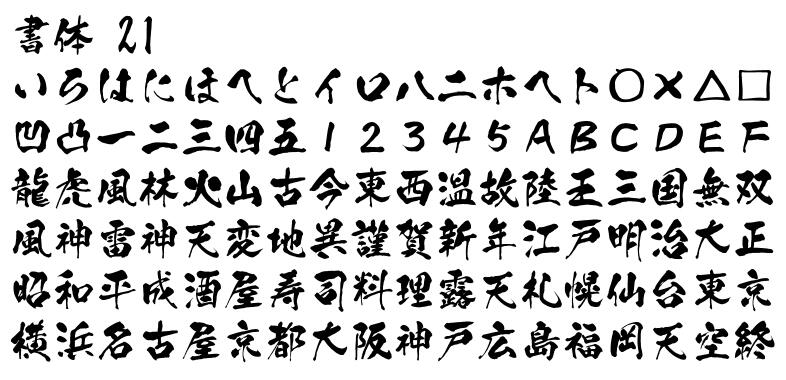 書体 21
いろはにほへとイロハニホヘト○×△□
凹凸一二三四五12345ABCDEF
龍虎風林火山古今東西温故陸王三国無双
風神雷神天変地異謹賀新年江戸明治大正
昭和平成酒屋寿司料理露天札幌仙台東京
横浜名古屋京都大阪神戸広島福岡天空終